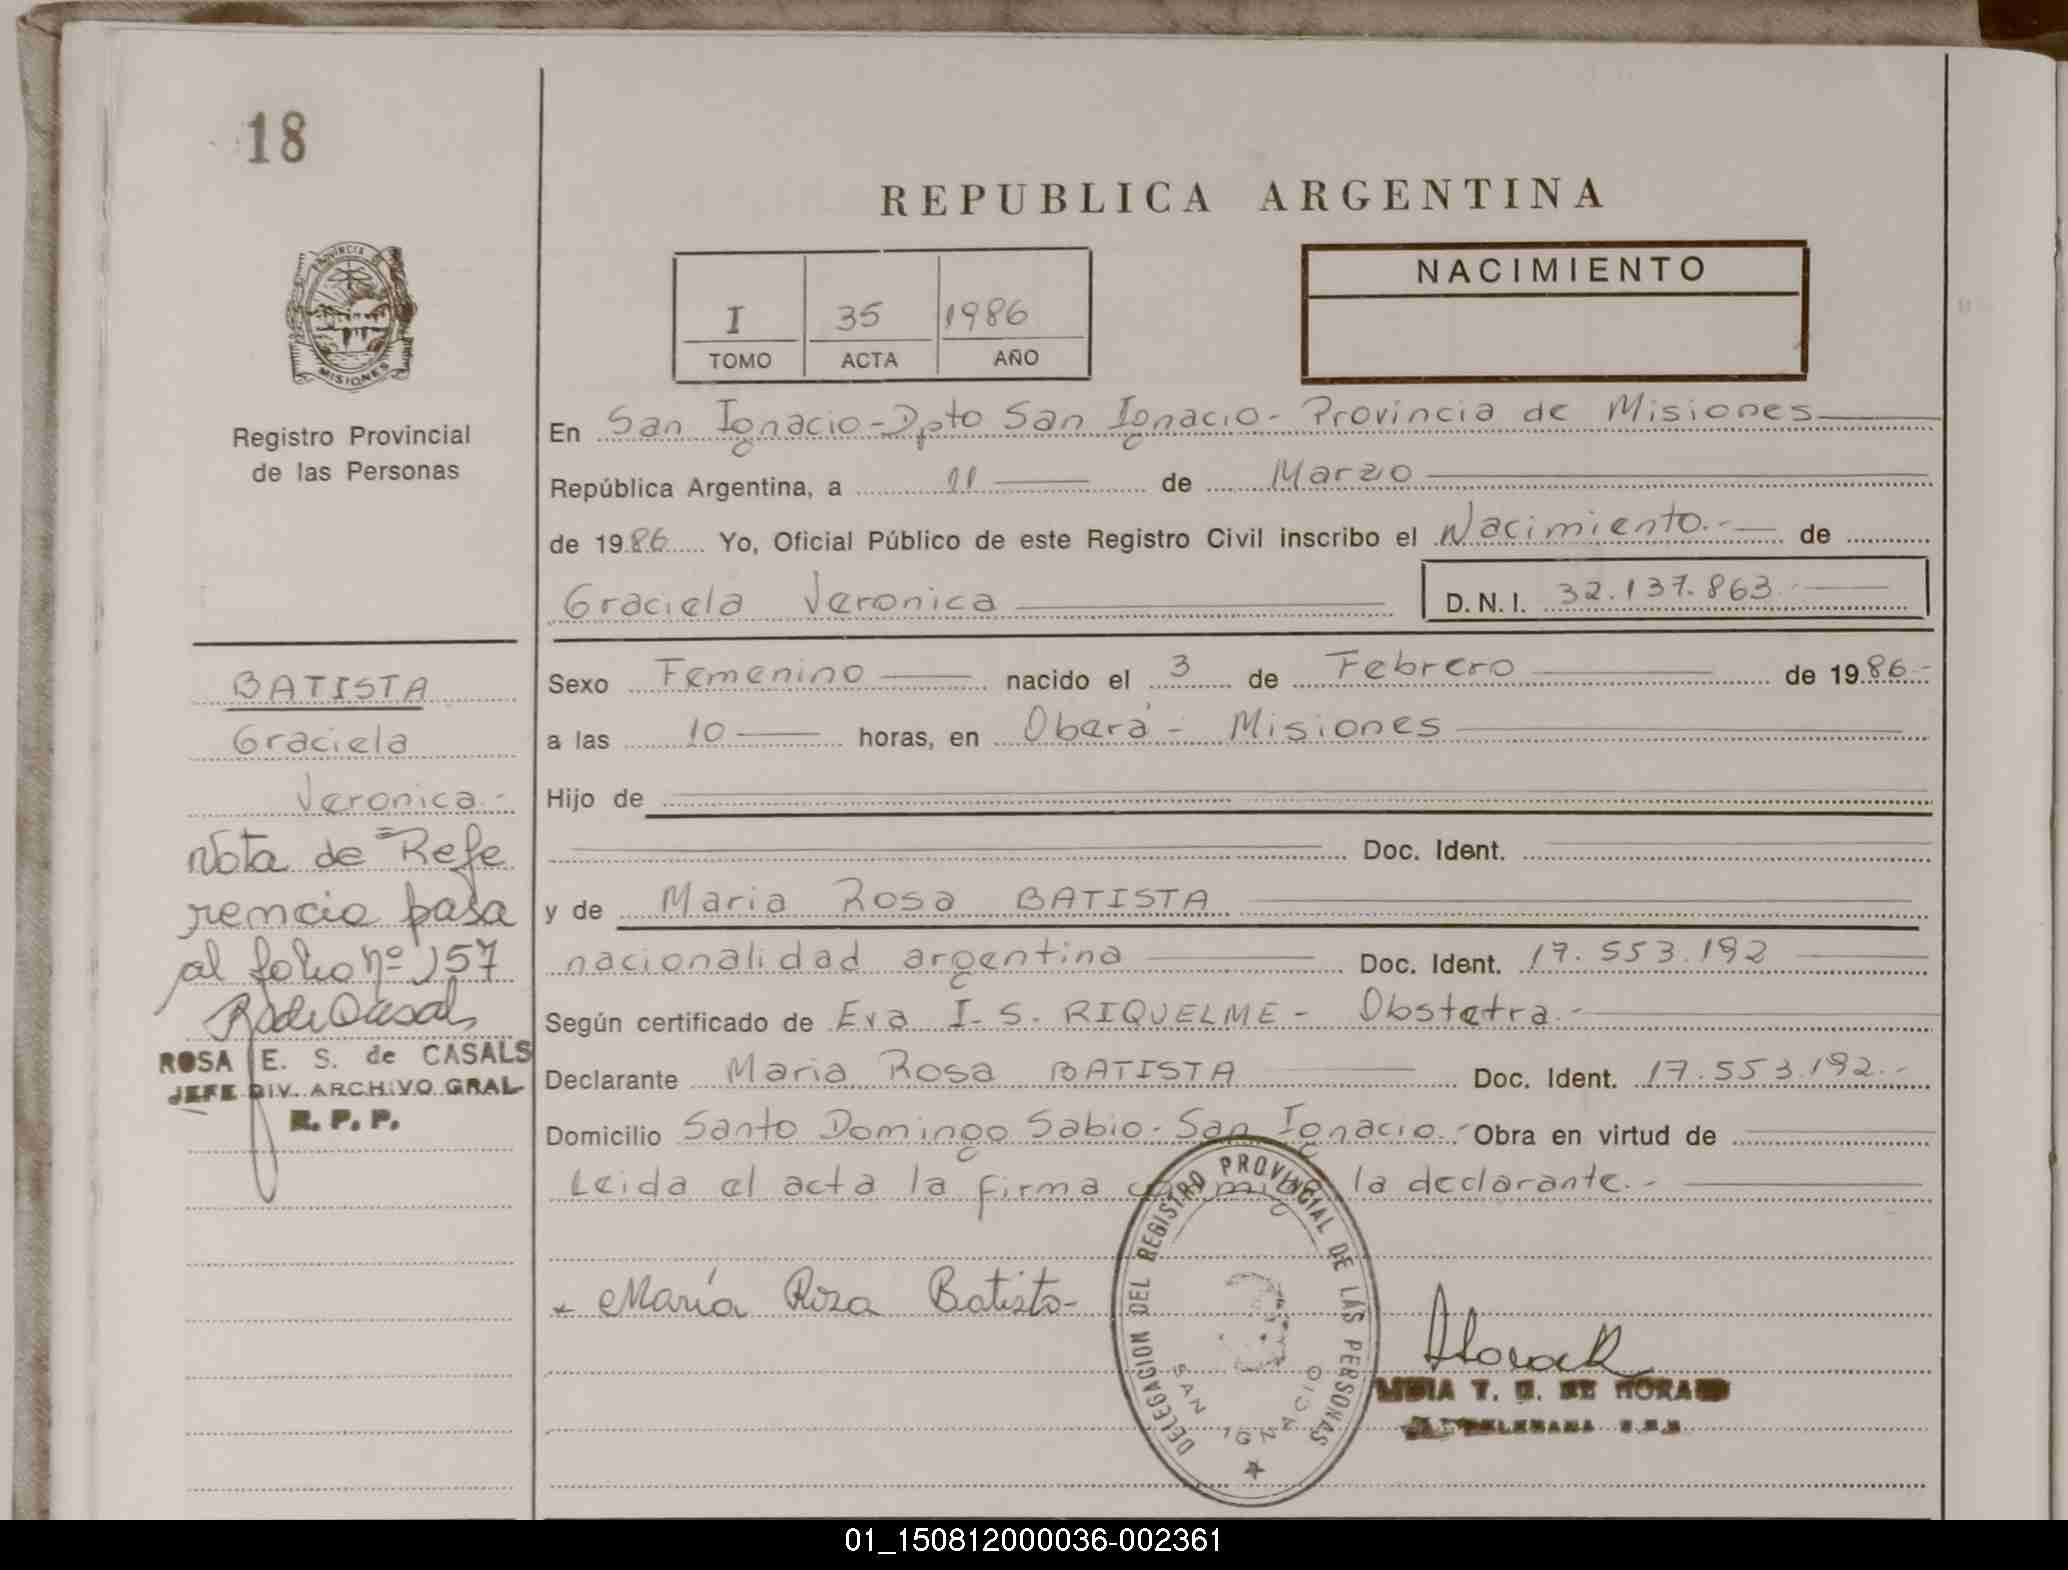 18
REPUBLICA ARGENTINA
PROVINCIA DE
MISIONES
Registro Provincial
de las Personas
I 35 1986
TOMO ACTA AÑO
NACIMIENTO
En San Ignacio-Dpto San Ignacio- Provincia de Misiones
República Argentina, a 11 de Marzo
de 1986 Yo, Oficial Público de este Registro Civil inscribo el Nacimiento.- de
Graciela Veronica D.N.I. 32.137.863.
BATISTA
Graciela
Veronica.-
Nota de Refe
rencia pasa
al folio nº 157
ROSA E. S. de CASALS
JEFE DIV. ARCHIVO GRAL
R. P. P.
Sexo Femenino nacido el 3 de Febrero de 1986.-
a las 10 horas, en Oberá - Misiones
Hijo de
Doc. Ident.
y de Maria Rosa BATISTA
nacionalidad argentina Doc. Ident. 17.553.192
Según certificado de Eva I. S. RIQUELME - Obstetra.-
Declarante Maria Rosa BATISTA Doc. Ident. 17.553.192.-
Domicilio Santo Domingo Sabio- San Ignacio.- Obra en virtud de
Leida el acta la firma conmigo la declarante.-
María Rosa Batista-
DELEGACION DEL REGISTRO PROVINCIAL DE LAS PERSONAS
SAN IGNACIO
T. DE
01_150812000036-002361